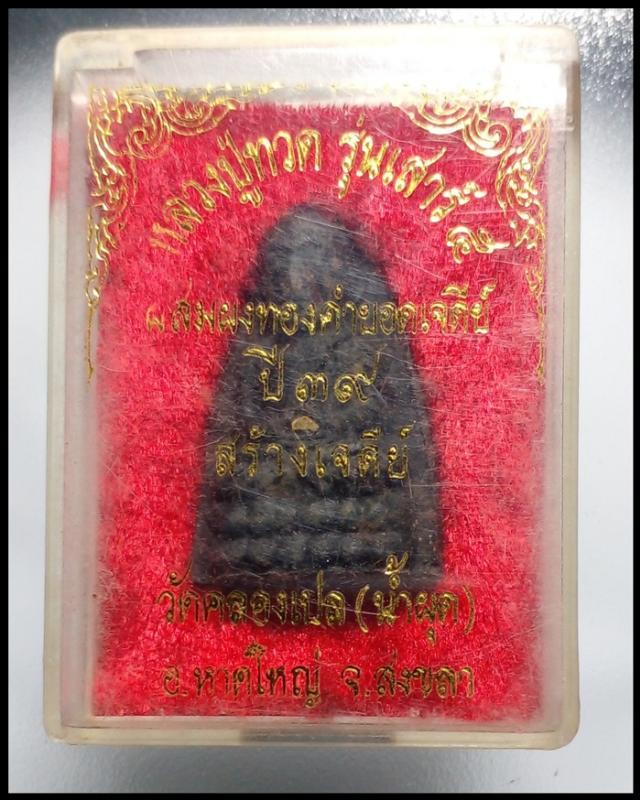 หลวงปู่ทวด รุ่นเสาร์ ๕
ผสมผงทองคำยอดเจดีย์
ปี ๓๙
สร้างเจดีย์
วัดคลองเปล (น้ำผุด)
อ.หาดใหญ่ จ.สงขลา